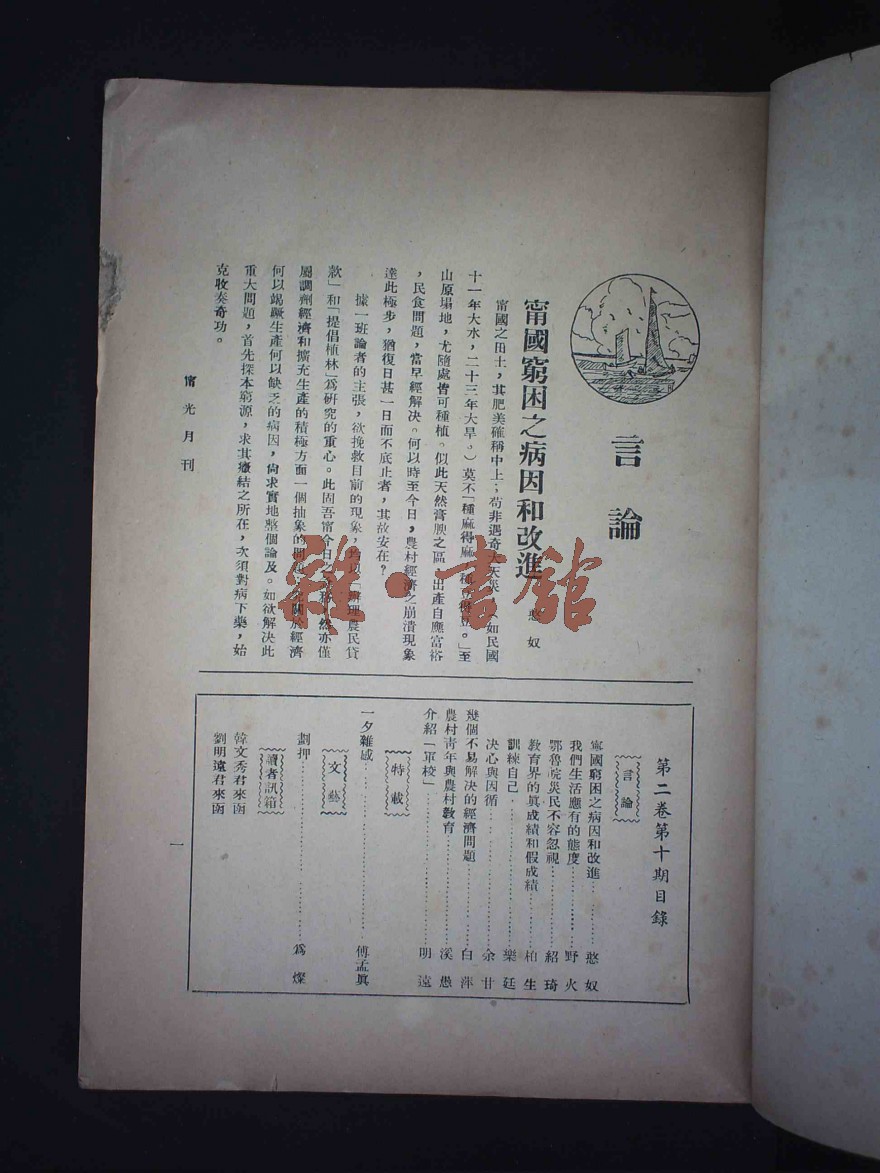 言論
甯國窮困之病因和改進
憨奴
甯國之田土，其肥美確稱中上；苟非遇奇大天災，（如民國
十一年大水，二十三年大旱。）莫不「種麻得麻，種豆得豆。」至
山原塌地，尤隨處皆可種植。似此天然膏腴之區，出產自應富裕
，民食問題，當早經解決。何以時至今日，農村經濟之崩潰現象
達此極步，猶復日甚一日而不底止者，其故安在？
據一班論者的主張，欲挽救目前的現象，均以「辦理農民貸
款」和「提倡植林」爲研究的重心。此固吾甯今日之　務，然亦僅
屬調劑經濟和擴充生產的積極方面一個抽象的問題，　關於經濟
何以竭蹶生產何以缺乏的病因，尙未實地整個論及。如欲解決此
重大問題，首先探本窮源，求其癥結之所在，次須對病下藥，始
克收奏奇功。
甯光月刊
第二卷第十期目錄
言論
甯國窮困之病因和改進…………憨奴
我們生活應有的態度……………野火
鄂魯皖災民不容忽視……………紹琦
教育界的眞成績和假成績………柏生
訓練自己…………………………樂廷
決心與因循………………………余廿
幾個不易解決的經濟問題………白萍
農村靑年與農村敎育……………溪愚
介紹「軍校」……………………明遠
特載
一夕雜感…………………………傅孟眞
文藝
劃押………………………………爲燦
讀者訊箱
韓文秀君來函
劉明遠君來函
一
雜·書館